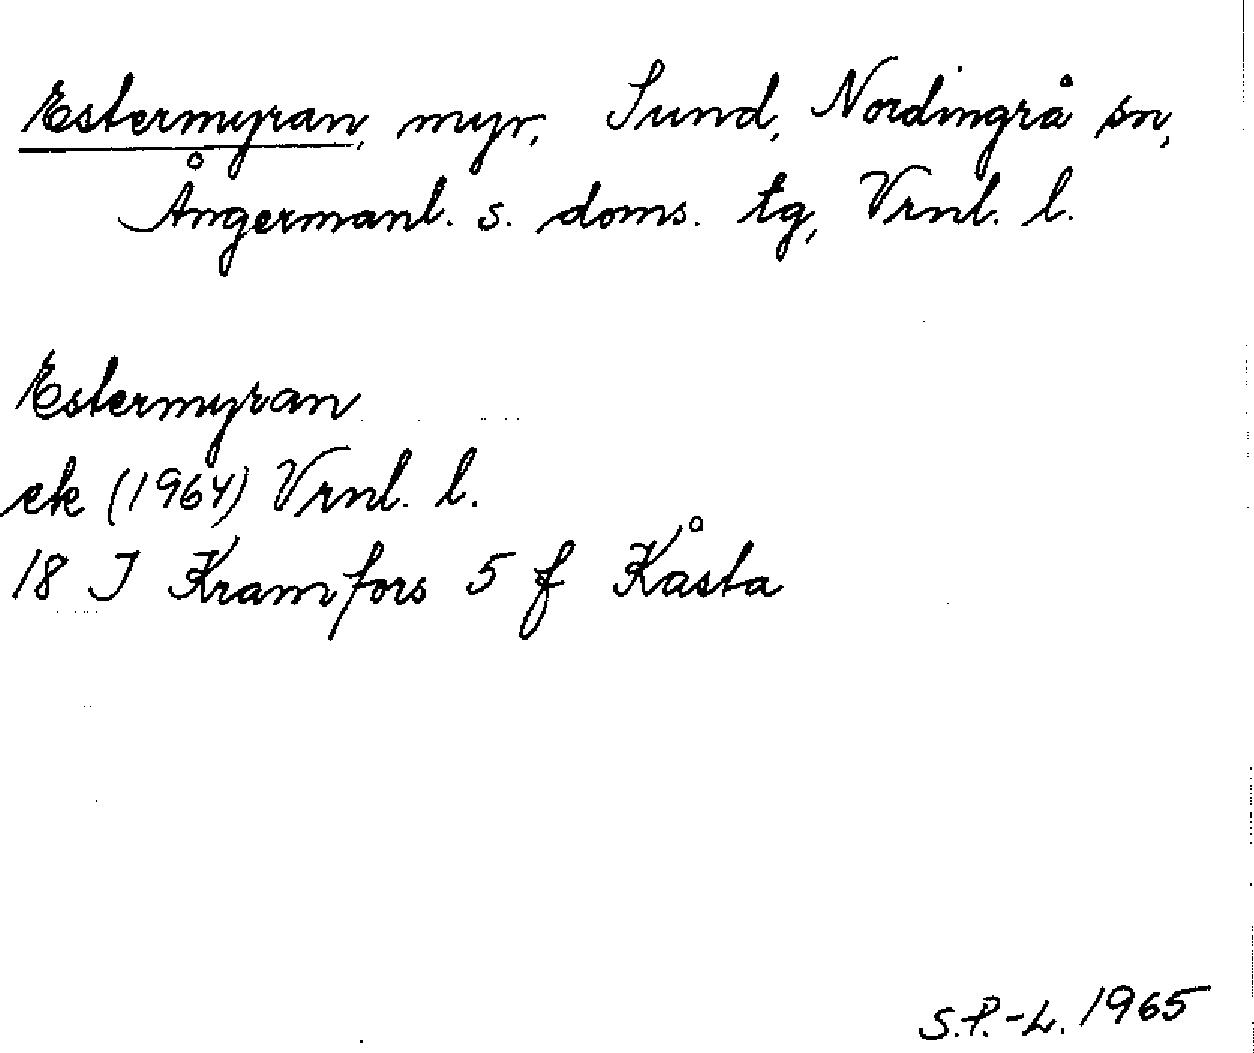 Estermyran, myr, Sund, Nordingrå sn,
Ångermanl. s. doms. tg, Vrnl. l.
Estermyran
ek (1964) Vrnl. l.
18 I Kramfors 5 f Kåsta
S.P.-L. 1965